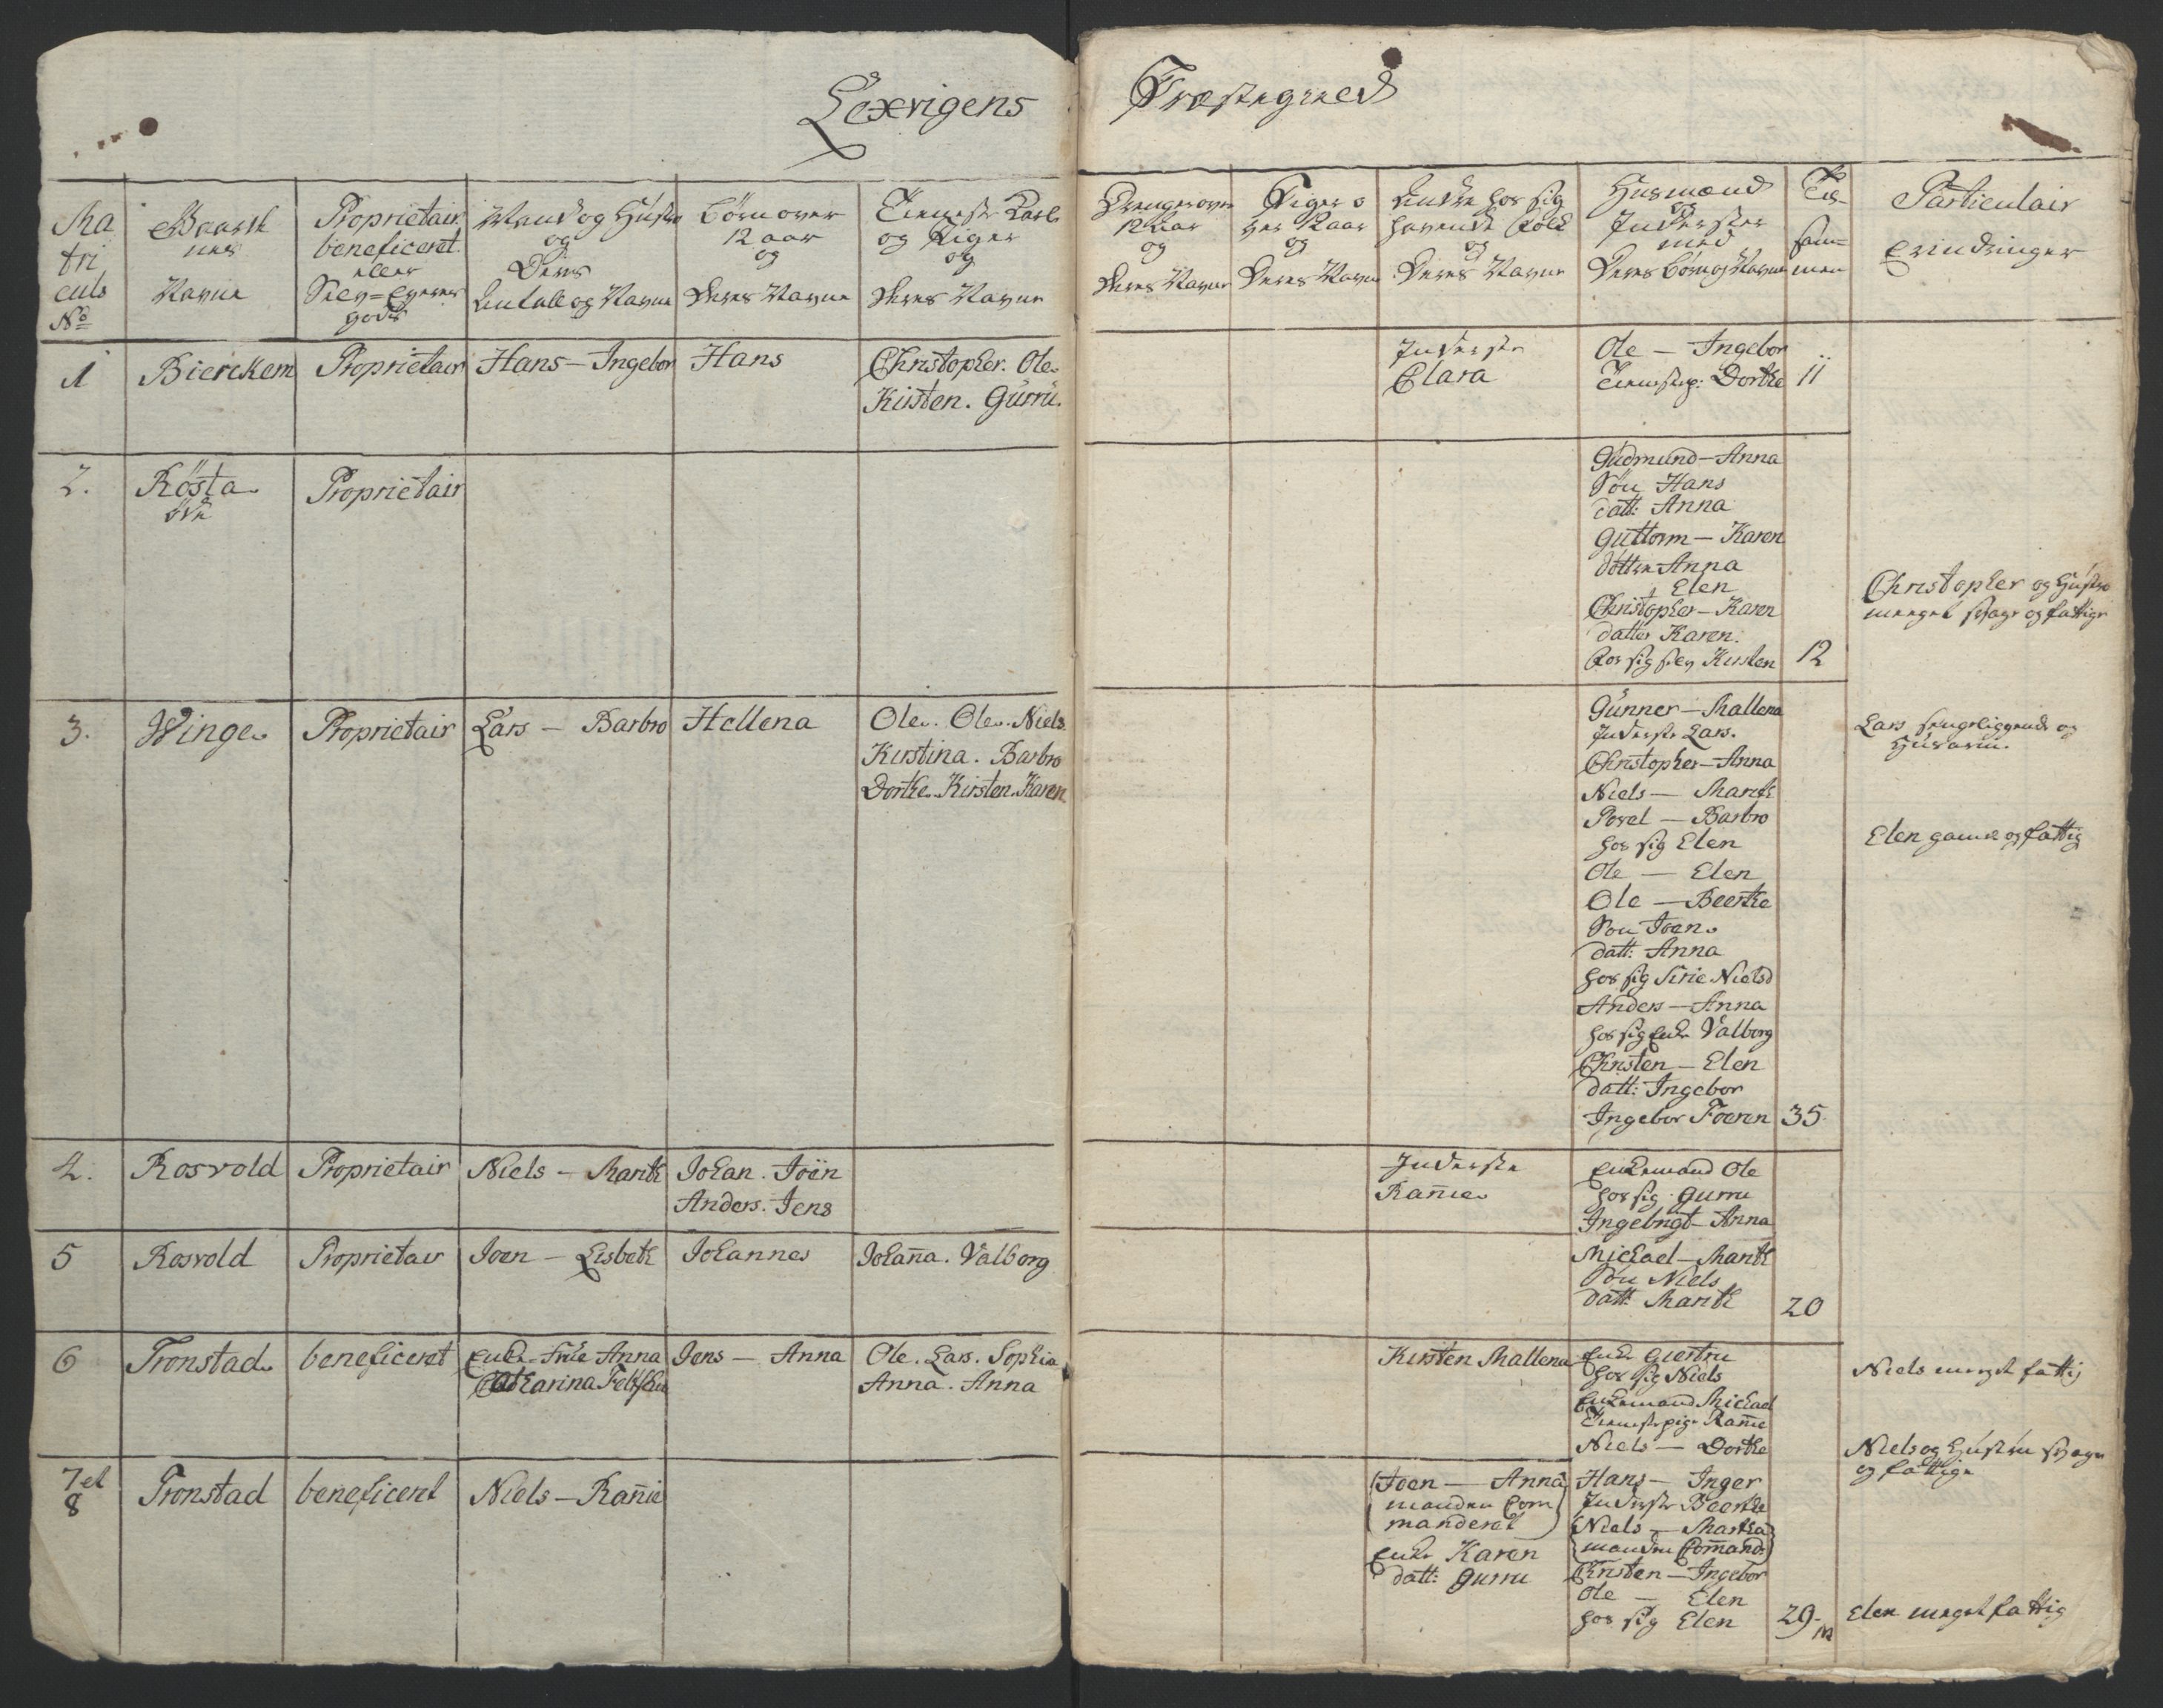 Lexvigens Præstegield
Ma
tri
culs
No
Gaarde
nes
Navne
Proprietair
beneficeret
eller
Siev=Eyener
gods
Mand og Hustru
og
Deres
Antall og Navne
börn over
12 aar
og
Deres Navne
Tieneste Karle
og Piger
og
Deres Navne
Drenge over
12 aar
og
Deres Navne
Piger o
ver 12 aar
og
Deres Navne
Andre hos sig
havende Folk
og
Deres Navne
Husmænd
og
Inderster
med
Deres börn og Navne
Til=
sam=
men
Particulair
Erindringer
1
Bierckem
Proprietair
Hans — Ingebor
Hans
Christopher. Ole.
Kirsten. Gurru.
Inderste
Clara
Ole — Ingebor
Tienestep: Dorthe
11
2.
Rösta
öde
Proprietair
Gudmund — Anna
Sön Hans
datt: Anna
Guttorm — Karen
döttre Anna
Elen
Christopher — Karen
datter Karen.
for sig siev Kirsten
12
Christopher og Hustro
meeget svage og fattige
3.
Winge
Proprietair
Lars — Barbro
Hellena
Ole. Ole. Niels.
Kirstina. Barbro
Dorthe. Kirsten. Karen
Gunner — Mallena
Inderste Lars.
Christopher — Anna
Niels — Marith
Povel — Barbro
hos sig Elen
Ole — Elen
Ole — Beerthe
Sön Joen
datt: Anna
hos sig Sirie Nielsd
Anders — Anna
hos sig Enke Valborg
Christen — Elen
datt: Ingebor
Ingebor Foeren
35
Lars sengeliggende og
Husarm.
Elen gamel og fattig
4.
Rosvold
Proprietair
Niels — Marith
Johan. Joen
Anders. Jens
Inderste
Rannie
Enkemand Ole
hos sig Gurru
Ingebrigt — Anna
5
Rosvold
Proprietair
Joen — Lisbeth
Johannes
Johanna. Valborg
Michael — Marith
Sön Niels
datt: Marith
20
6
Tronstad
beneficeret
Enke-Frue Anna
Catharina
Jens — Anna
Ole. Lars. Sophia
Anna. Anna
Kirsten Mallena
Enke Giertru
hos sig Niels
Enkemand Michael
Tienestepige Rannie
Niels — Dorthe
Niels meget fattig
Niels og Hustru svage
og fattige
7 et
8
Tronstad
beneficeret
Niels — Rannie
Joen — Anna
manden Com
manderet
Enke Karen
datt: Gurru
Hans — Inger
Inderste Beerthe
Niels — Martha
manden Commandr
Christen — Ingebor
Ole — Elen
hos sig Elen
29
Elen meget fattig